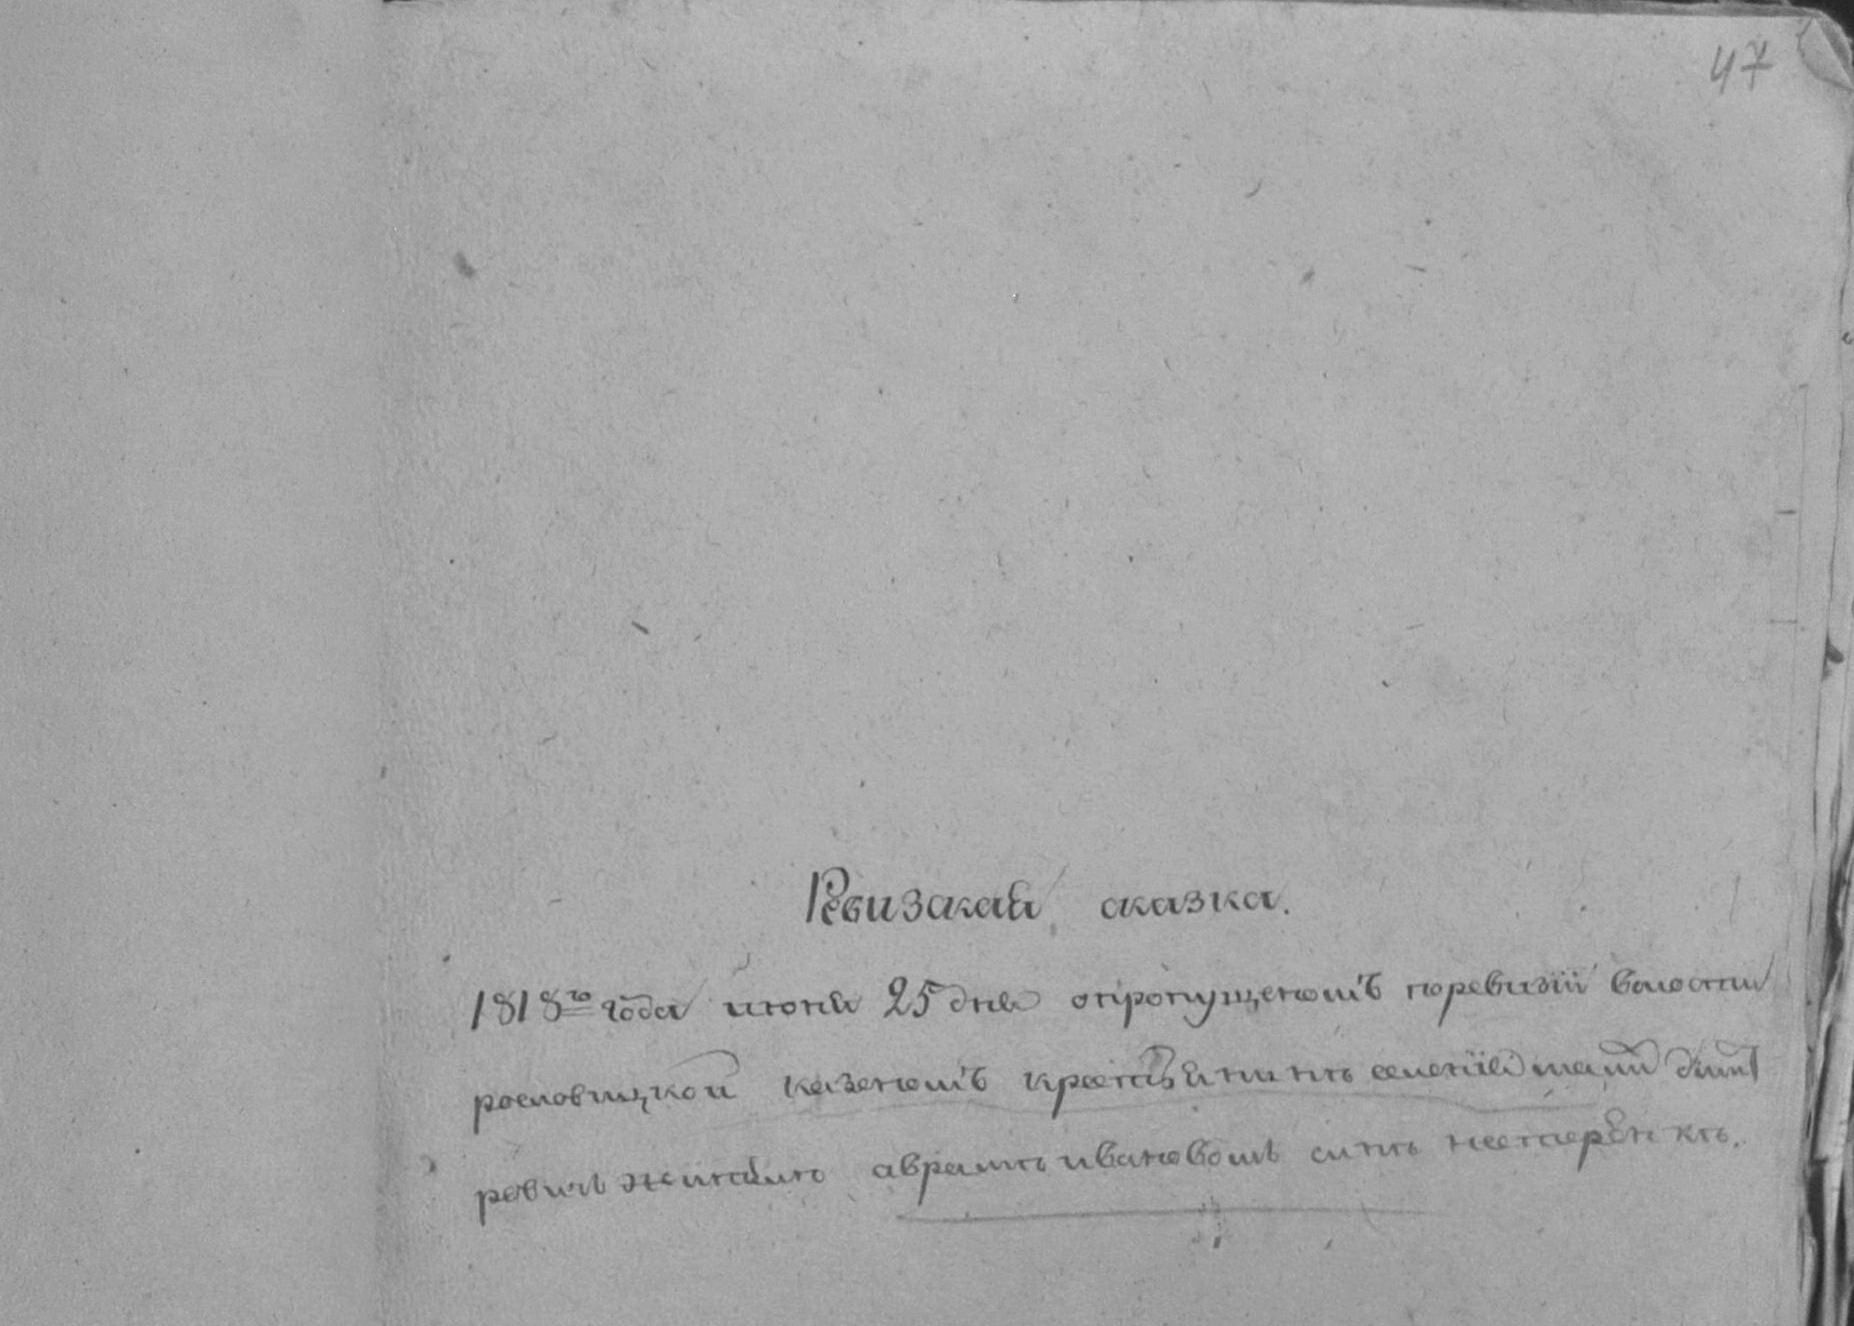 47
Ревизская сказка.
1818го года июня 25 дня опропущеномъ поревизїи волости
рословицкой казеномъ крестьянинъ селенїя
жителю аврамъ ивановомъ синъ нестеренкъ.